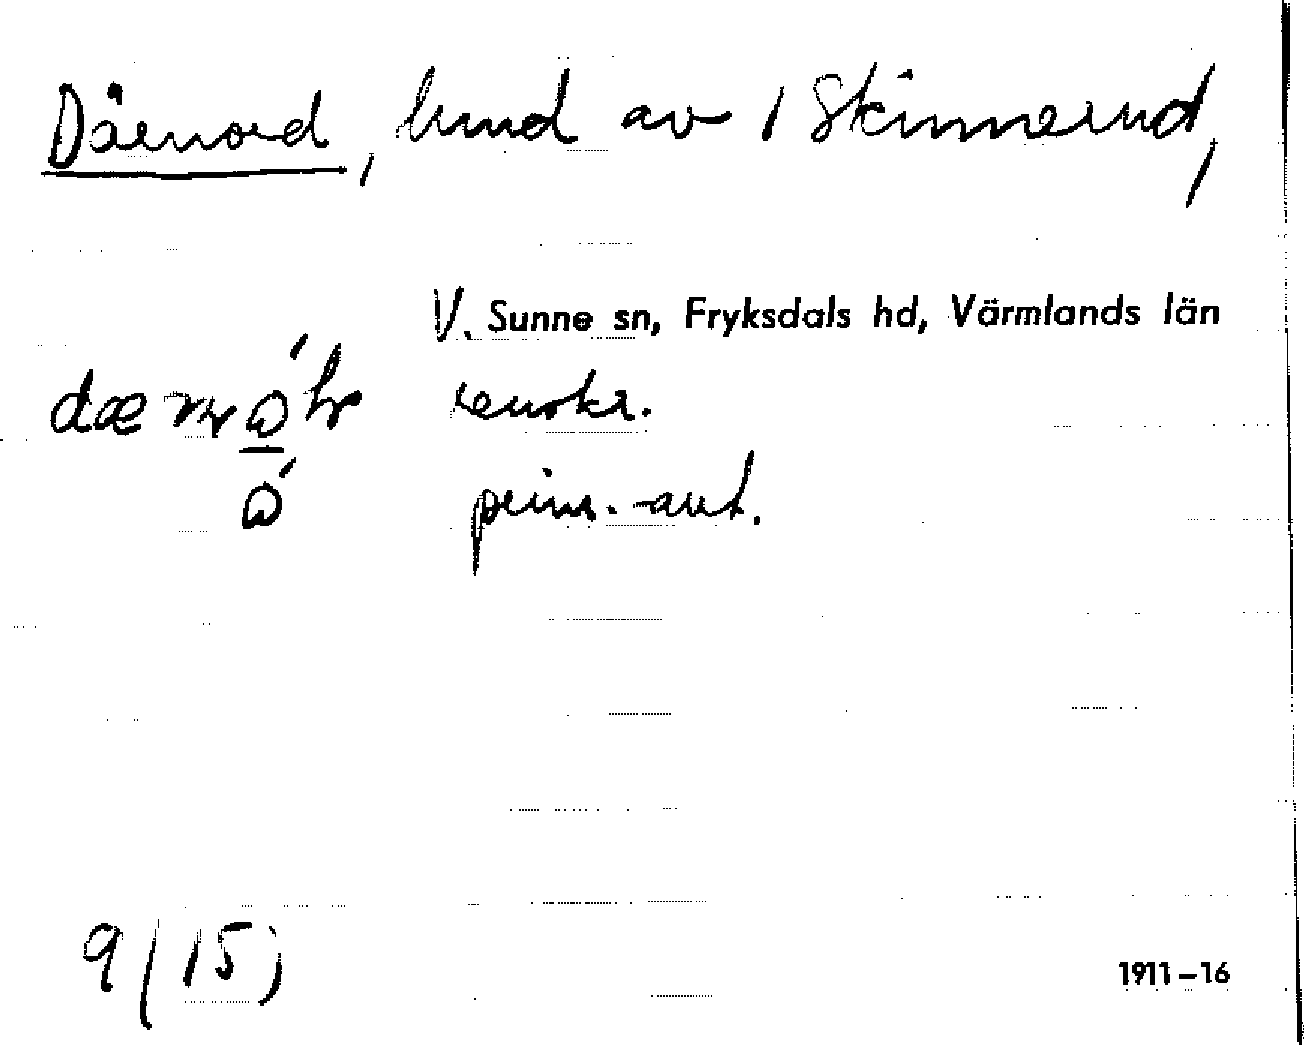 Därnord, lund av 1 Skinnerud,
V. Sunne sn, Fryksdals hd, Värmlands län
renskr.
prim.-ant.
9 (15)
1911–16